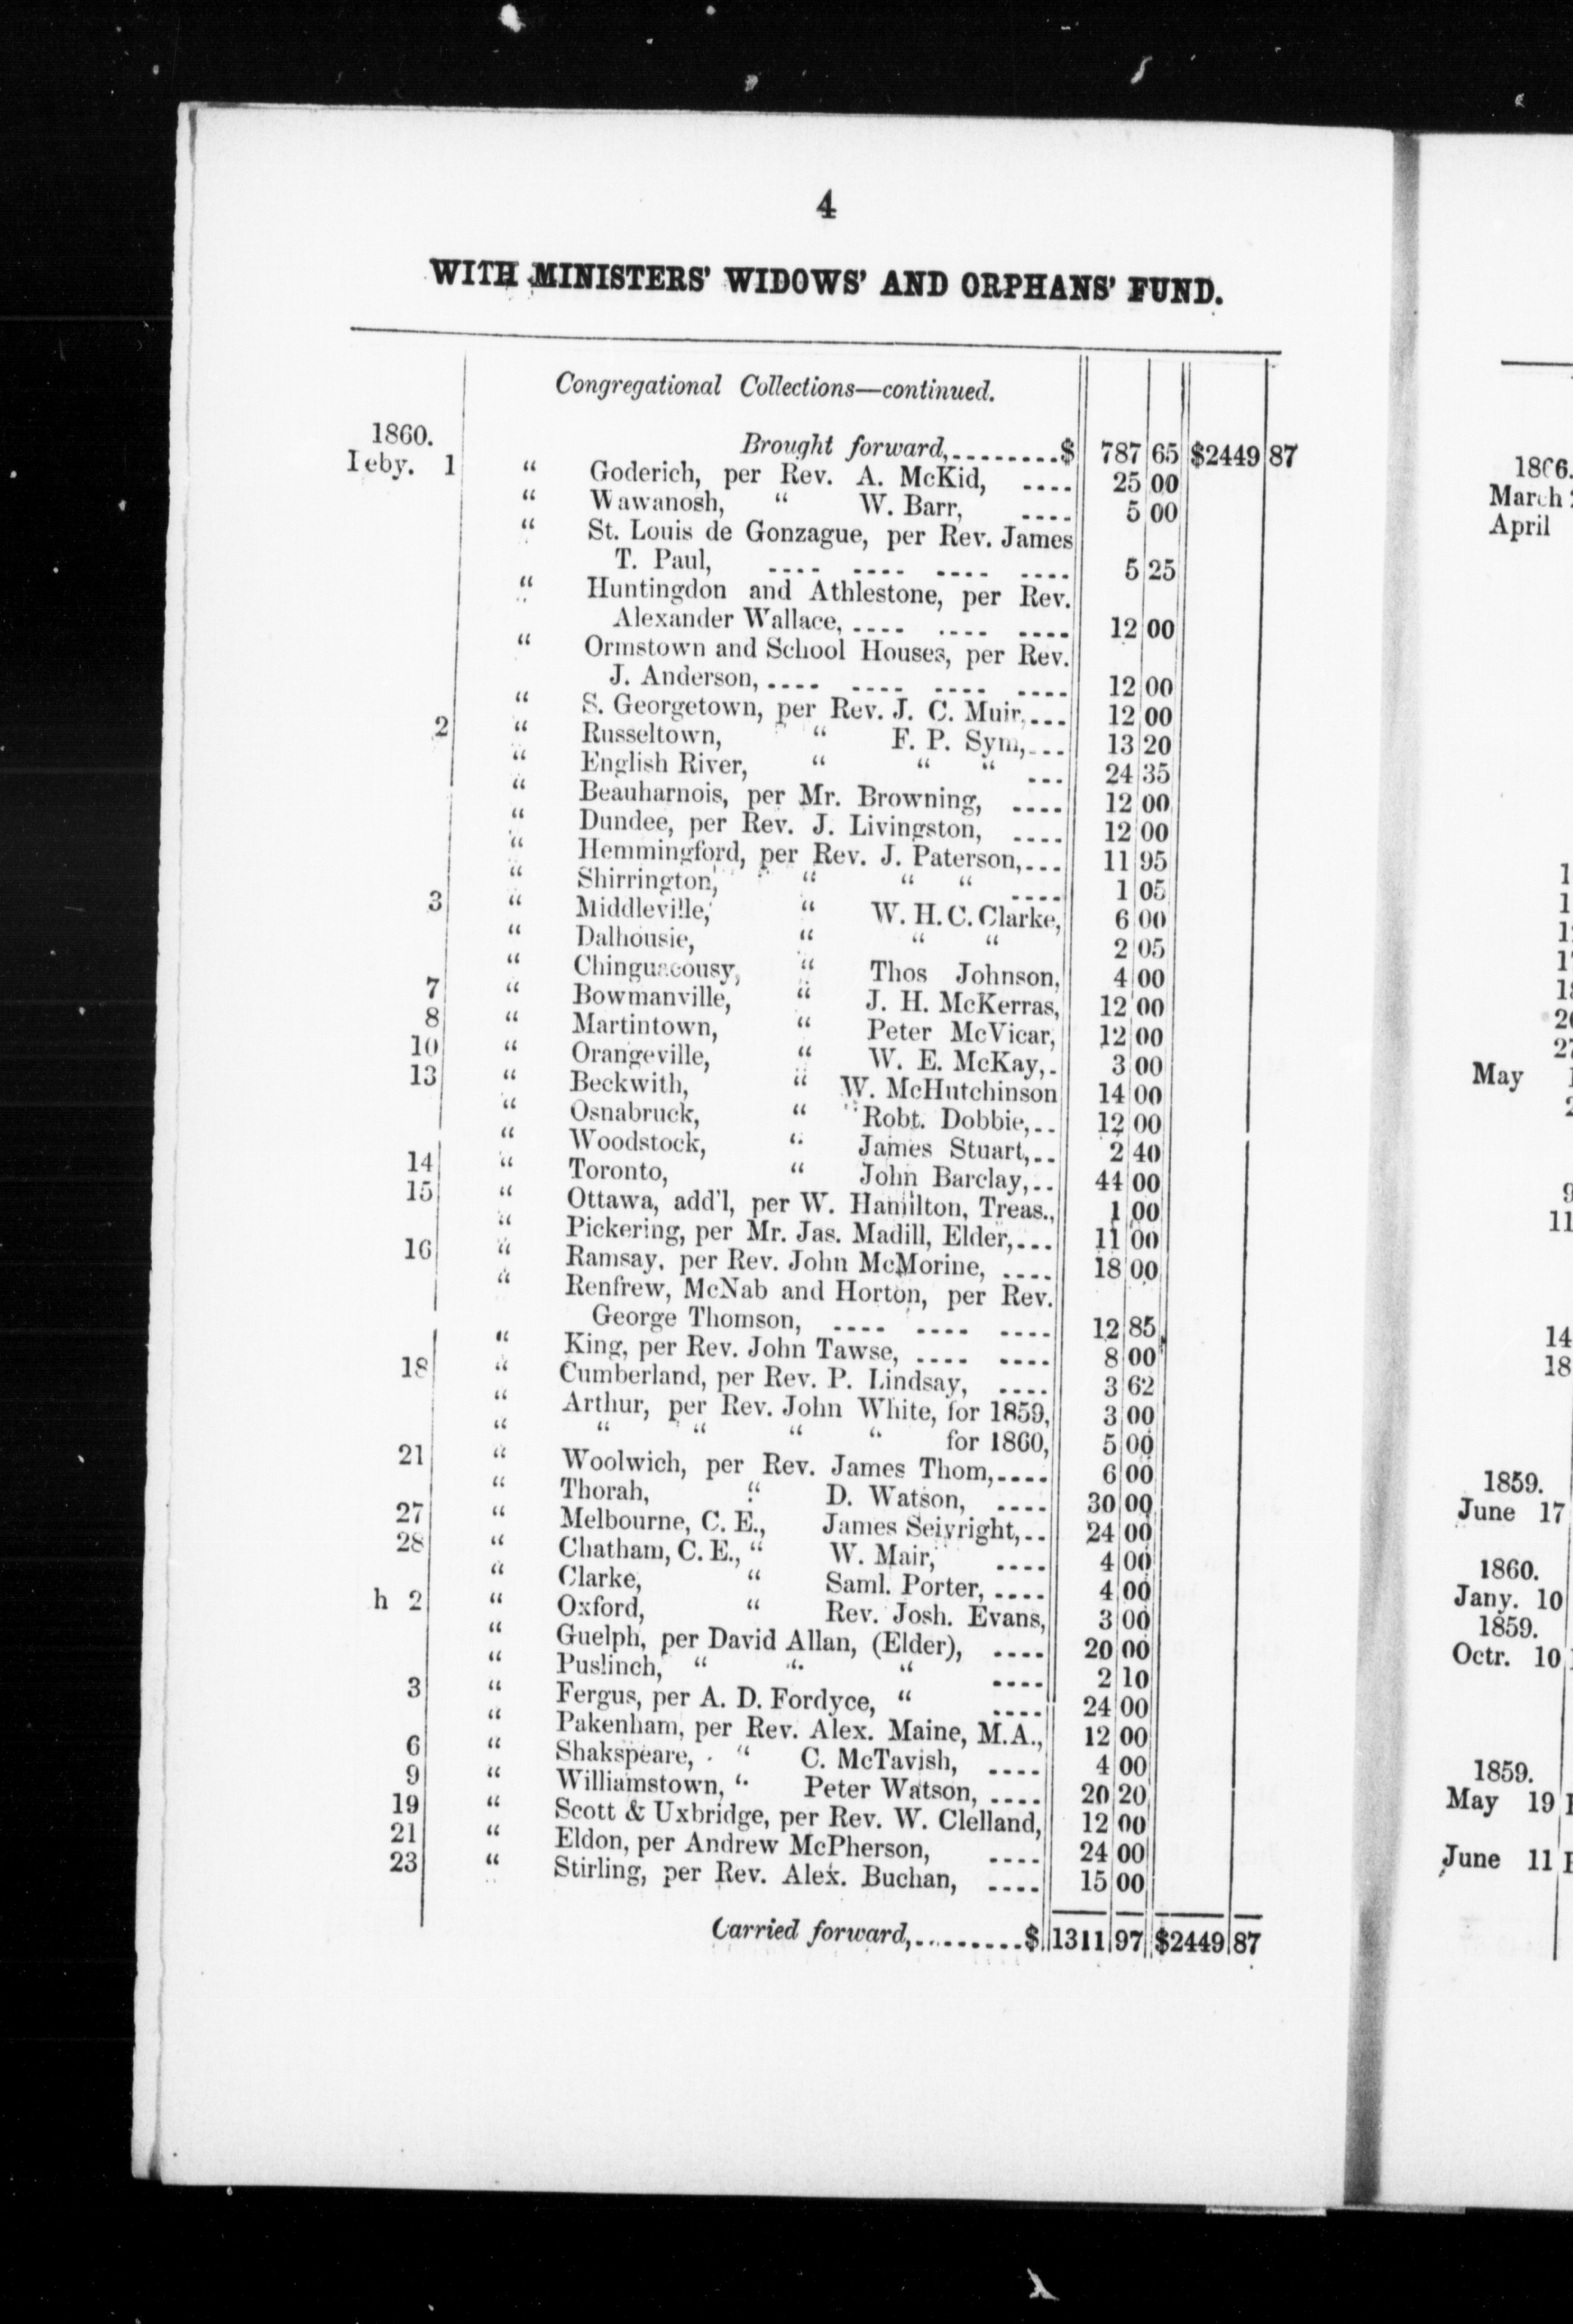 4
WITH MINISTERS' WIDOWS' AND ORPHANS' FUND.
Congregational Collections—continued.
1860.
Brought forward,.........$ 787 65 $2449 87
Feby. 1 “ Goderich, per Rev. A. McKid, .... 25 00
“ Wawanosh, “ W. Barr, .... 5 00
“ St. Louis de Gonzague, per Rev. James
T. Paul, .... .... .... .... 5 25
“ Huntingdon and Athlestone, per Rev.
Alexander Wallace, .... .... .... 12 00
“ Ormstown and School Houses, per Rev.
J. Anderson, .... .... .... .... 12 00
“ S. Georgetown, per Rev. J. C. Muir,... 12 00
2 “ Russeltown, “ F. P. Sym,... 13 20
“ English River, “ “ “ ... 24 35
“ Beauharnois, per Mr. Browning, .... 12 00
“ Dundee, per Rev. J. Livingston, .... 12 00
“ Hemmingford, per Rev. J. Paterson,... 11 95
“ Shirrington, “ “ “ .... 1 05
3 “ Middleville, “ W. H. C. Clarke, 6 00
“ Dalhousie, “ “ “ 2 05
“ Chinguacousy, “ Thos Johnson, 4 00
7 “ Bowmanville, “ J. H. McKerras, 12 00
8 “ Martintown, “ Peter McVicar, 12 00
10 “ Orangeville, “ W. E. McKay,. 3 00
13 “ Beckwith, “ W. McHutchinson 14 00
“ Osnabruck, “ Robt. Dobbie,.. 12 00
“ Woodstock, “ James Stuart,.. 2 40
14 “ Toronto, “ John Barclay,.. 44 00
15 “ Ottawa, add'l, per W. Hamilton, Treas., 1 00
“ Pickering, per Mr. Jas. Madill, Elder,... 11 00
16 “ Ramsay, per Rev. John McMorine, .... 18 00
“ Renfrew, McNab and Horton, per Rev.
George Thomson, .... .... .... 12 85
“ King, per Rev. John Tawse, .... .... 8 00
18 “ Cumberland, per Rev. P. Lindsay, .... 3 62
“ Arthur, per Rev. John White, for 1859, 3 00
“ “ “ “ “ for 1860, 5 00
21 “ Woolwich, per Rev. James Thom,.... 6 00
“ Thorah, “ D. Watson, .... 30 00
27 “ Melbourne, C. E., James Seivright,.. 24 00
28 “ Chatham, C. E., “ W. Mair, .... 4 00
“ Clarke, “ Saml. Porter, .... 4 00
h 2 “ Oxford, “ Rev. Josh. Evans, 3 00
“ Guelph, per David Allan, (Elder), .... 20 00
“ Puslinch, “ “ “ .... 2 10
3 “ Fergus, per A. D. Fordyce, “ .... 24 00
“ Pakenham, per Rev. Alex. Maine, M.A., 12 00
6 “ Shakspeare, “ C. McTavish, .... 4 00
9 “ Williamstown, “ Peter Watson, .... 20 20
19 “ Scott & Uxbridge, per Rev. W. Clelland, 12 00
21 “ Eldon, per Andrew McPherson, .... 24 00
23 “ Stirling, per Rev. Alex. Buchan, .... 15 00
Carried forward,.........$ 1311 97 $2449 87
March
April
May
11
14
18
1859.
June 17
1860.
Jany. 10
1859.
Octr. 10
1859.
May 19
June 11